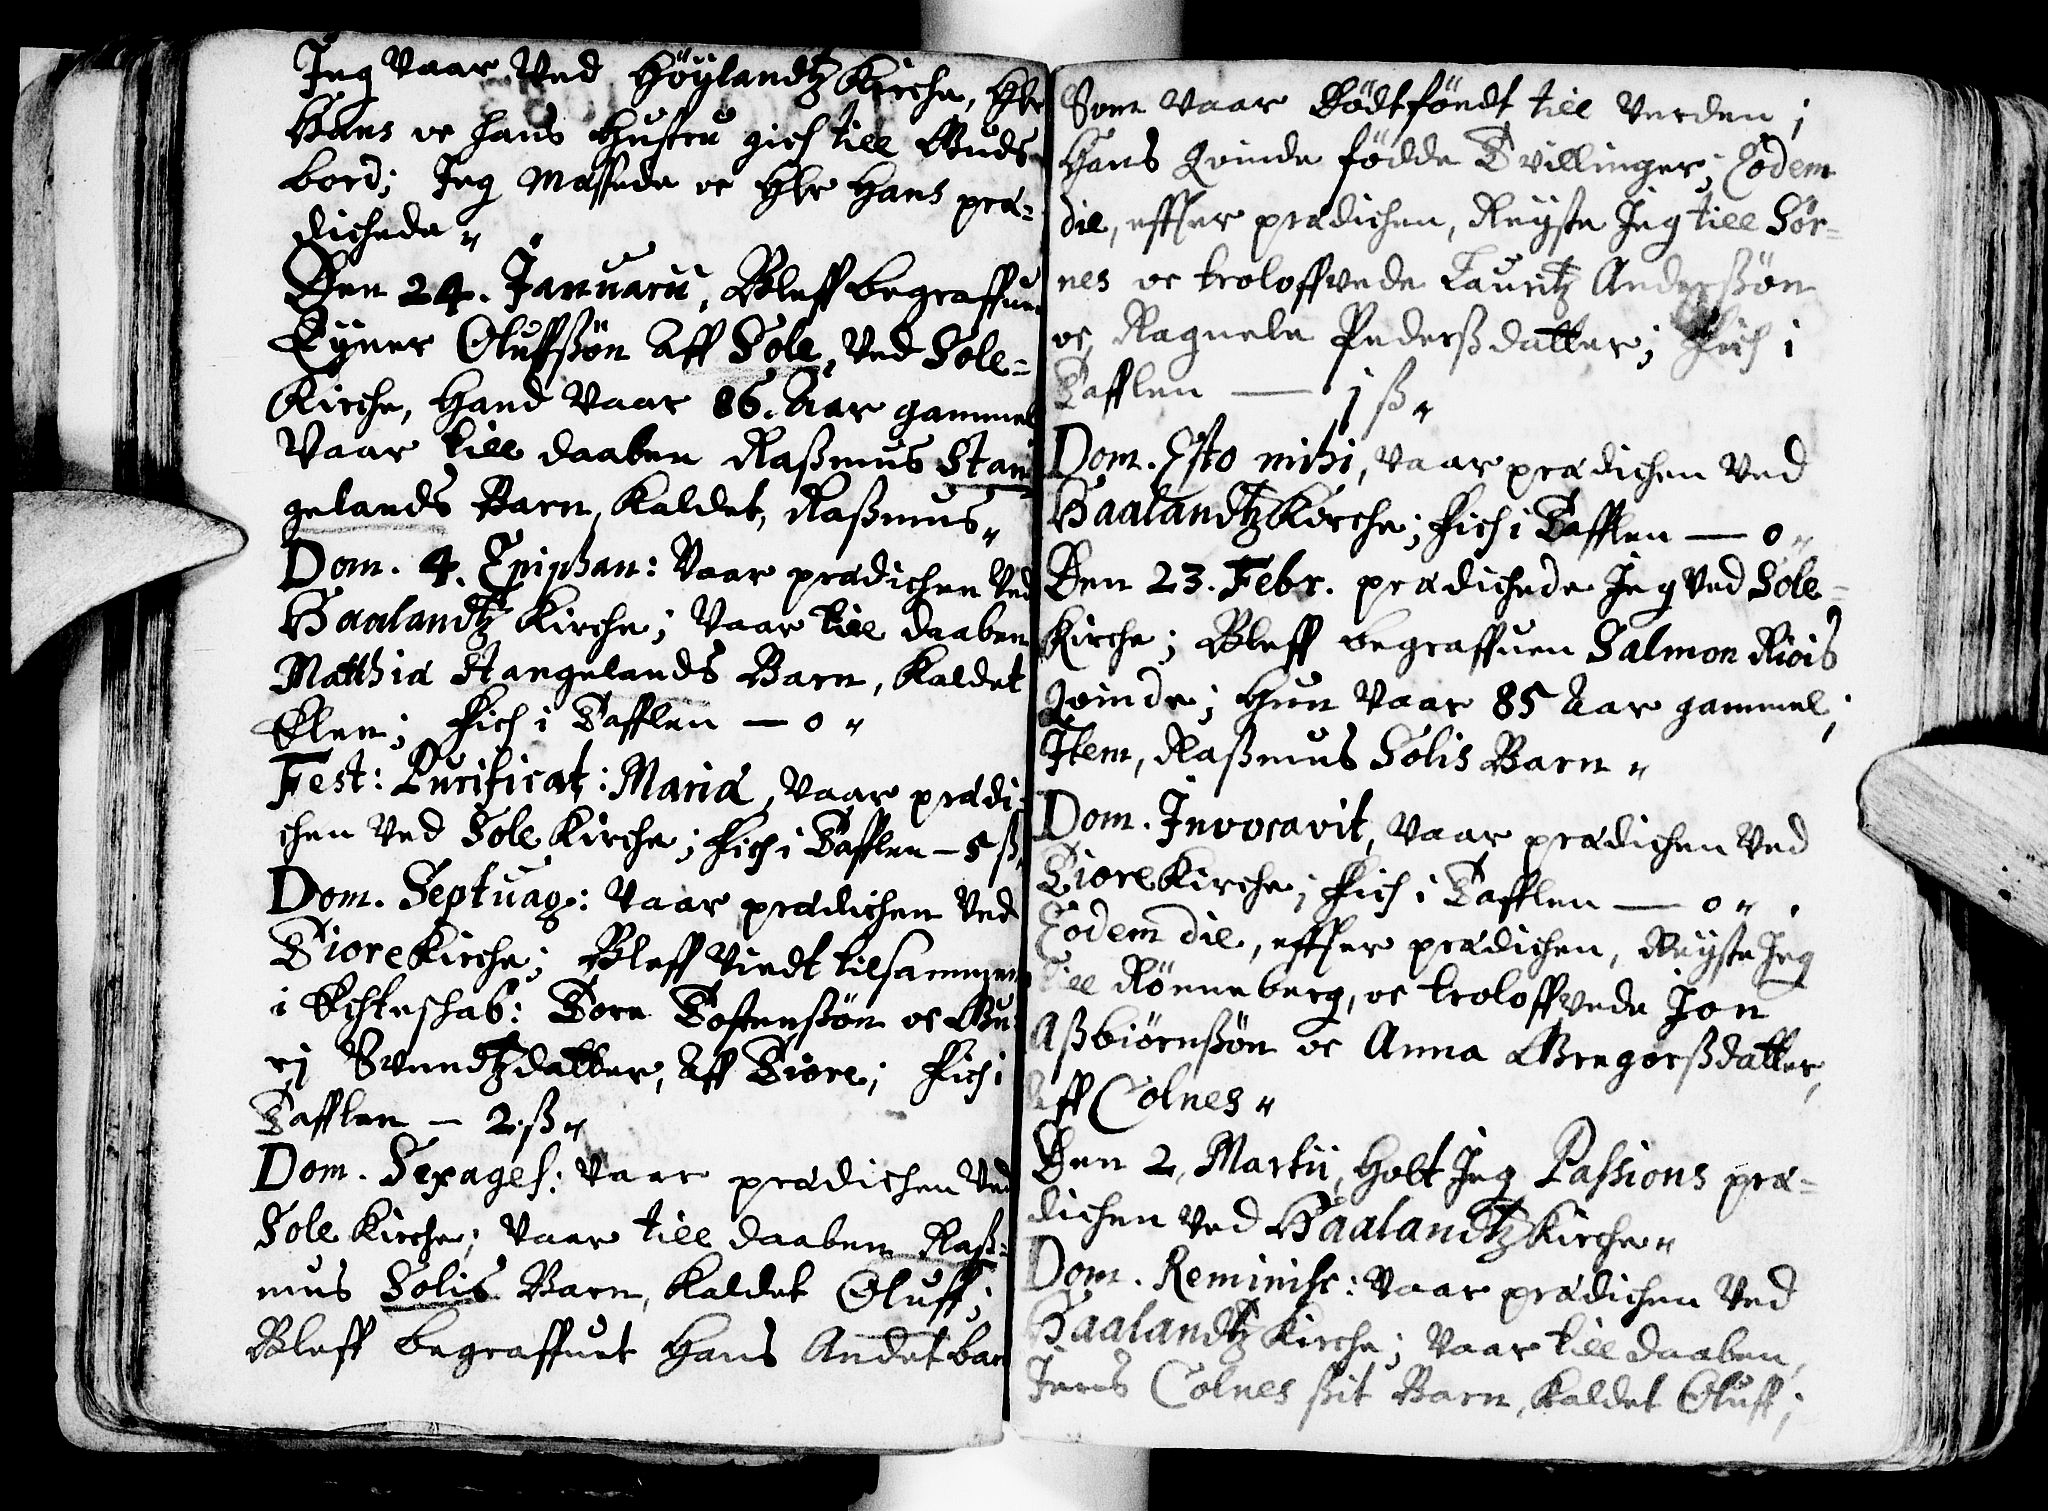 Jeg vaar ved Höÿlandtz Kirche, Hr
Hans oc hans Hustru gich till Guds
bord; Jeg Messede oc Hr Hans præ-
dichede"
Den 24. Januarii, Bleff begraffuen
Eÿner Oluffßön Aff Sole, ved Sole-
Kirche, Hand vaar 86. Aar gammel
Vaar till daaben Raßmus Stan
gelands Barn, kaldet, Raßmus"
Dom. 4. Epiphan: Vaar prædichen ved
Haalandtz Kirche; Vaar till daaben
Matthiæ Stangelands Barn, kaldet
Elen; Fich i Tafflen — 0 "
Fest: Purificat: Mariæ, vaar prædi-
chen ved Sole Kirche; Fich i Tafflen — 5 ß"
Dom. Septuag: Vaar prædichen ved
Tiore Kirche; Bleff viedt tilsammen
i Echteschab: Tore Tostenßön oc Gu-
rj Svendtzdatter, Aff Tiore; Fich i
Tafflen — 2. ß"
Dom. Sexages: Vaar prædichen ved
Sole Kirche; Vaar till daaben Raß-
mus Solis Barn, kaldet Oluff;
Bleff begraffuet Hans Andet barn
Som vaar Dödtföndt till Verden;
Hans Qvinde födde Tvillinger; Eodem
die, effter prædichen, Reÿste Jeg till Sör-
nes oc troloffvede Lauritz Anderßön
oc Ragnele Pederßdatter; Fich i
Tafflen — 1 ß"
Dom. Esto mihi, vaar prædichen ved
Haalandtz Kirche; Fich i Tafflen — 0 "
Den 23. Febr. prædichede Jeg ved Sole-
Kirche; Bleff begraffuen Salmon Riöis
Qvinde; Hun vaar 85 Aar gammel;
Item, Raßmus Solis Barn "
Dom. Invocavit, vaar prædichen ved
Tiore Kirche; Fich i Tafflen — 0 "
Eodem die, effter prædichen, Reÿste Jeg
till Rönneberg, oc troloffvede Jon
Aßbiörnßön oc Anna Gregorßdatter,
Aff Colnes "
Den 2. Martii, Holt Jeg Passions præ-
dichen ved Haalandtz Kirche"
Dom. Reminisc: Vaar prædichen ved
Haalandtz Kirche; Vaar till daaben,
Jens Colnes ßit Barn, kaldet Oluff;